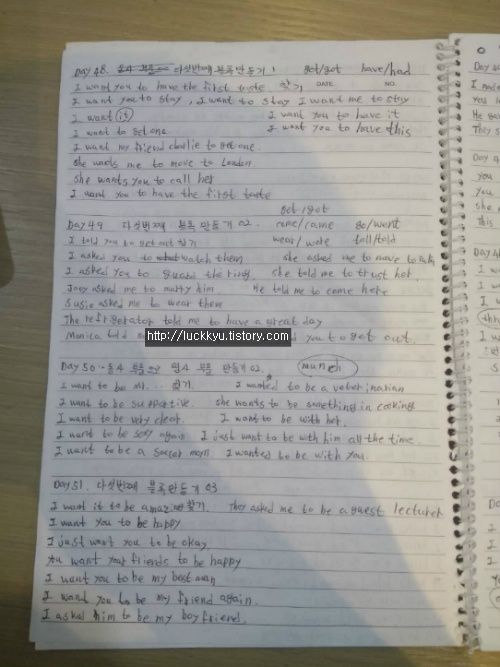 Day 48. 다섯번째 블록만들기 1 get/got have/had
I want you to have the first taste 찾기 DATE NO.
I want you to stay, I want to stay I want me to stay
I want it I want you to have it
I want to get one I want you to have this
I want my friend charlie to get one.
She wants me to move to London.
She wants you to call her
I want you to have the first taste
get/got
Day 49 다섯번째 블록 만들기 02. come/came go/went
I told you to get out 찾기 wear/wore tell/told
I asked you to watch them she asked me to move to
I asked you to guard the ring. she told me to trust her.
Joey asked me to marry him. He told me to come here
Susie asked me to wear them
The refrigerator told me to have a great day
Monica told you to get out.
http://luckkyu.tistory.com
Day 50. 동사 부품 명사 부품 만들기 02. munch
I want to be 찾기. I wanted to be a veterinarian
I want to be supportive. She wants to be something in cooking
I want to be very clear. I want to be with her.
I want to be sexy again I just want to be with him all the time.
I want to be a soccer mom I wanted to be with you.
Day 51. 다섯번째 블록만들기 03
I want it to be amazing 찾기. They asked me to be a guest lecturer
I want you to be happy
I just want you to be okay
You want your friends to be happy
I want you to be my best man
I want you to be my friend again.
I asked him to be my boyfriend.